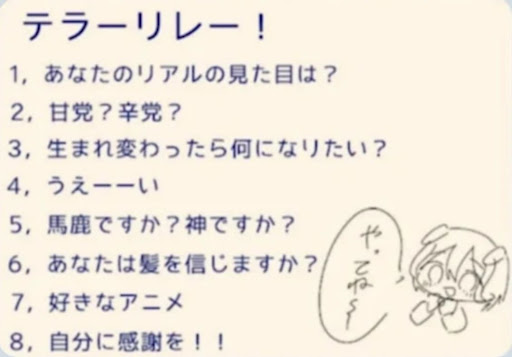 テラーリレー！
1，あなたのリアルの見た目は？
2，甘党？辛党？
3，生まれ変わったら何になりたい？
4，うえーーい
5，馬鹿ですか？神ですか？
6，あなたは髪を信じますか？
7，好きなアニメ
8，自分に感謝を！！
やってね〜